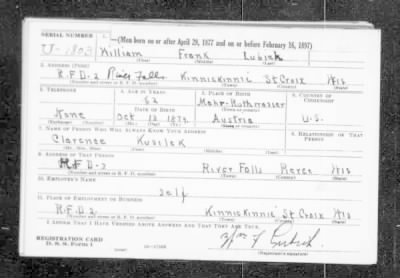 SERIAL NUMBER 1. —(Men born on or after April 28, 1877 and on or before February 16, 1897)
U-1803 William Frank Lubich
(First) (Middle) (Last)
2. ADDRESS (PRINT)
R.F.D-2 River Falls Kinnickinnic St Croix Wis
(Number and street or R. F. D. number) (Town) (County) (State)
3. TELEPHONE 4. AGE IN YEARS 5. PLACE OF BIRTH 6. COUNTRY OF CITIZENSHIP
62
DATE OF BIRTH
None Oct 13 1879 Austria U.S.
(Exchange) (Number) (Mo.) (Day) (Yr.)
7. NAME OF PERSON WHO WILL ALWAYS KNOW YOUR ADDRESS 8. RELATIONSHIP OF THAT PERSON
Clarence Kusilek
(Mr., Mrs., Miss) (First) (Middle) (Last)
9. ADDRESS OF THAT PERSON
R.F.D-3 River Falls Pierce Wis
(Number and street or R. F. D. number) (Town) (County) (State)
10. EMPLOYER'S NAME
self
11. PLACE OF EMPLOYMENT OR BUSINESS
R.F.D 2 Kinnickinnic St Croix Wis
(Number and street or R. F. D. number) (Town) (County) (State)
I AFFIRM THAT I HAVE VERIFIED ABOVE ANSWERS AND THAT THEY ARE TRUE.
REGISTRATION CARD
D. S. S. Form 1
Wm F Lubich
(Registrant's signature)